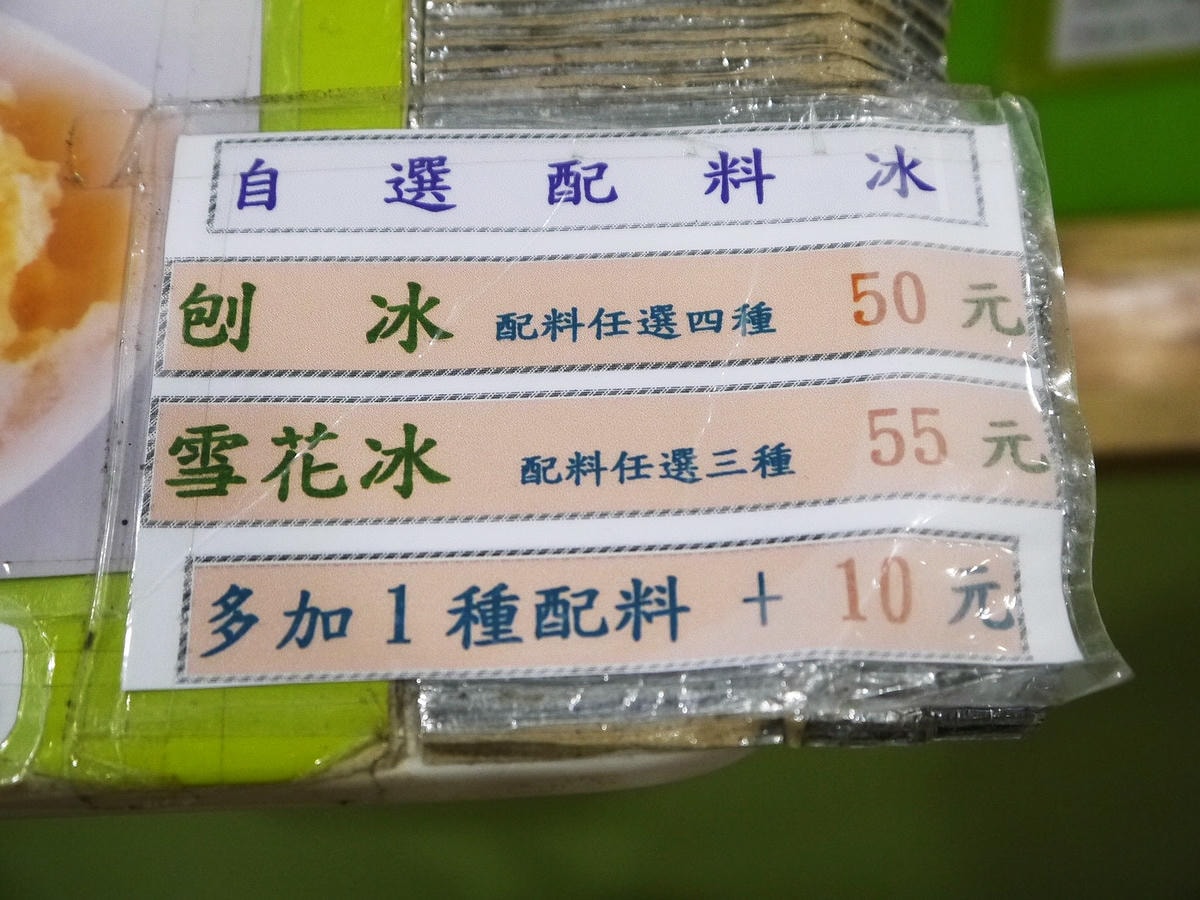 自選配料冰
刨冰 配料任選四種 50元
雪花冰 配料任選三種 55元
多加1種配料 + 10元